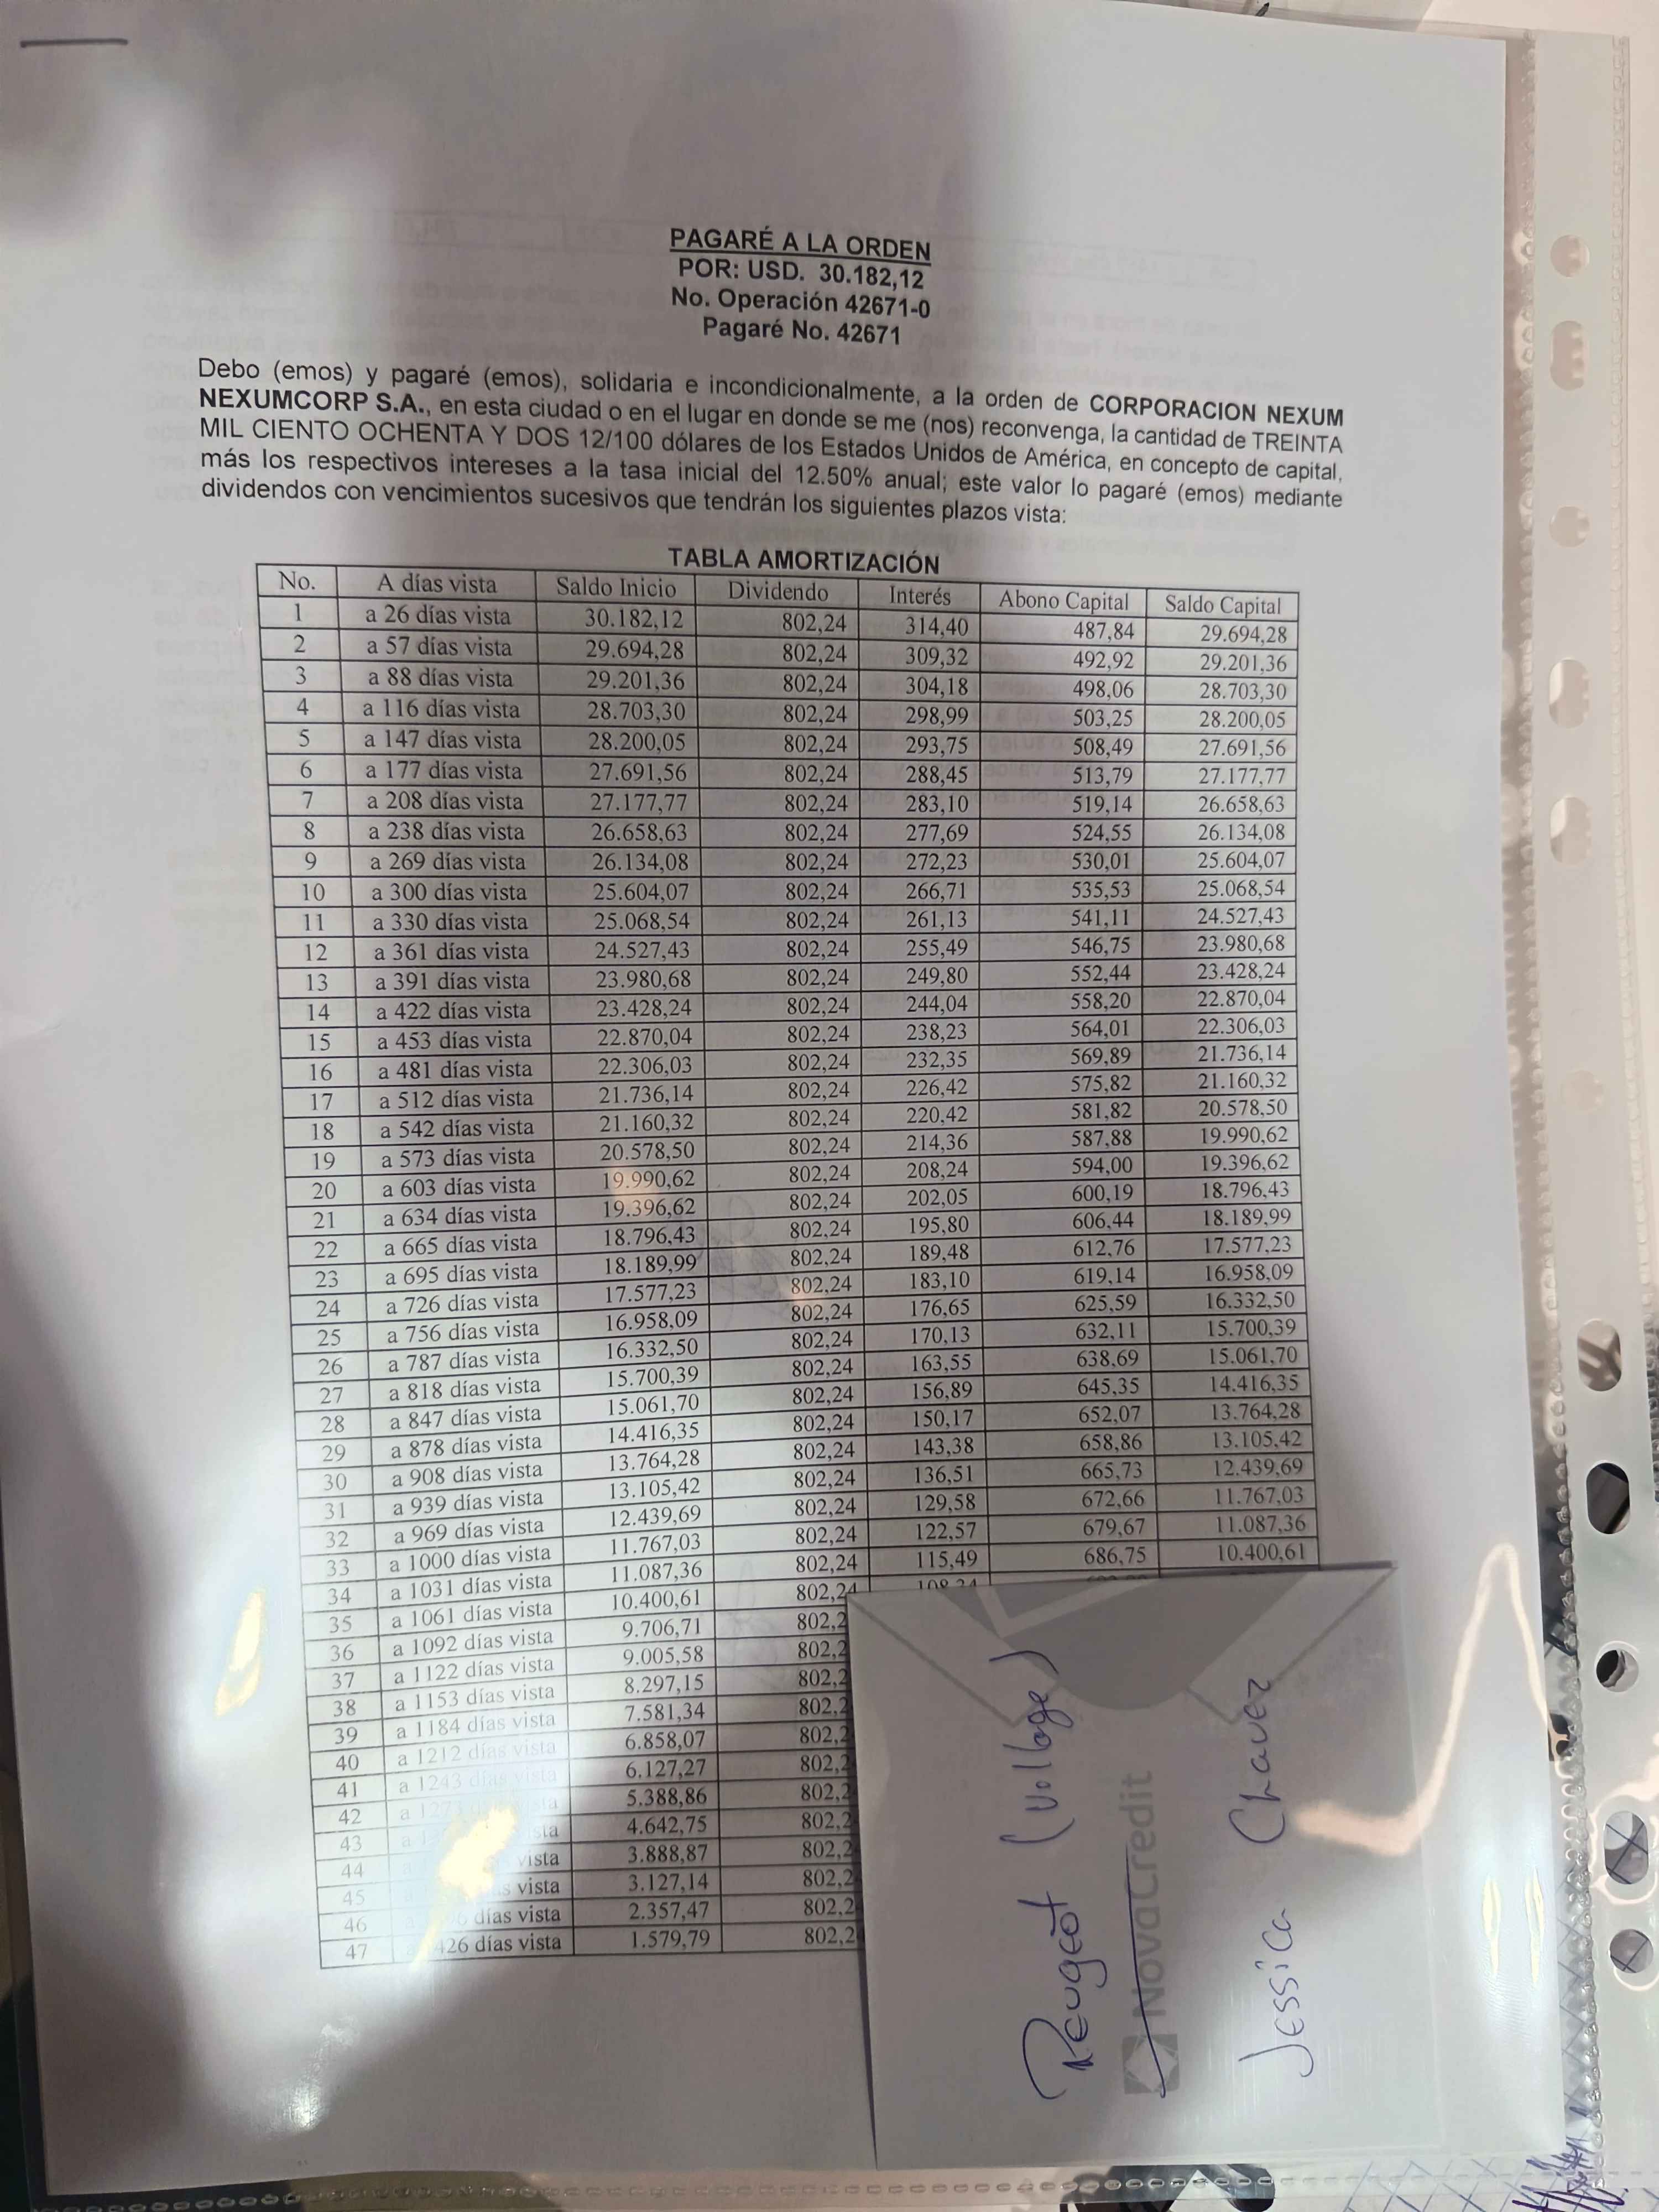 PAGARÉ A LA ORDEN
POR: USD. 30.182,12
No. Operación 42671-0
Pagaré No. 42671
Debo (emos) y pagaré (emos), solidaria e incondicionalmente, a la orden de CORPORACION NEXUM
NEXUMCORP S.A., en esta ciudad o en el lugar en donde se me (nos) reconvenga, la cantidad de TREINTA
MIL CIENTO OCHENTA Y DOS 12/100 dólares de los Estados Unidos de América, en concepto de capital,
más los respectivos intereses a la tasa inicial del 12.50% anual; este valor lo pagaré (emos) mediante
dividendos con vencimientos sucesivos que tendrán los siguientes plazos vista:
TABLA AMORTIZACIÓN
No. A días vista Saldo Inicio Dividendo Interés Abono Capital Saldo Capital
1 a 26 días vista 30.182,12 802,24 314,40 487,84 29.694,28
2 a 57 días vista 29.694,28 802,24 309,32 492,92 29.201,36
3 a 88 días vista 29.201,36 802,24 304,18 498,06 28.703,30
4 a 116 días vista 28.703,30 802,24 298,99 503,25 28.200,05
5 a 147 días vista 28.200,05 802,24 293,75 508,49 27.691,56
6 a 177 días vista 27.691,56 802,24 288,45 513,79 27.177,77
7 a 208 días vista 27.177,77 802,24 283,10 519,14 26.658,63
8 a 238 días vista 26.658,63 802,24 277,69 524,55 26.134,08
9 a 269 días vista 26.134,08 802,24 272,23 530,01 25.604,07
10 a 300 días vista 25.604,07 802,24 266,71 535,53 25.068,54
11 a 330 días vista 25.068,54 802,24 261,13 541,11 24.527,43
12 a 361 días vista 24.527,43 802,24 255,49 546,75 23.980,68
13 a 391 días vista 23.980,68 802,24 249,80 552,44 23.428,24
14 a 422 días vista 23.428,24 802,24 244,04 558,20 22.870,04
15 a 453 días vista 22.870,04 802,24 238,23 564,01 22.306,03
16 a 481 días vista 22.306,03 802,24 232,35 569,89 21.736,14
17 a 512 días vista 21.736,14 802,24 226,42 575,82 21.160,32
18 a 542 días vista 21.160,32 802,24 220,42 581,82 20.578,50
19 a 573 días vista 20.578,50 802,24 214,36 587,88 19.990,62
20 a 603 días vista 19.990,62 802,24 208,24 594,00 19.396,62
21 a 634 días vista 19.396,62 802,24 202,05 600,19 18.796,43
22 a 665 días vista 18.796,43 802,24 195,80 606,44 18.189,99
23 a 695 días vista 18.189,99 802,24 189,48 612,76 17.577,23
24 a 726 días vista 17.577,23 802,24 183,10 619,14 16.958,09
25 a 756 días vista 16.958,09 802,24 176,65 625,59 16.332,50
26 a 787 días vista 16.332,50 802,24 170,13 632,11 15.700,39
27 a 818 días vista 15.700,39 802,24 163,55 638,69 15.061,70
28 a 847 días vista 15.061,70 802,24 156,89 645,35 14.416,35
29 a 878 días vista 14.416,35 802,24 150,17 652,07 13.764,28
30 a 908 días vista 13.764,28 802,24 143,38 658,86 13.105,42
31 a 939 días vista 13.105,42 802,24 136,51 665,73 12.439,69
32 a 969 días vista 12.439,69 802,24 129,58 672,66 11.767,03
33 a 1000 días vista 11.767,03 802,24 122,57 679,67 11.087,36
34 a 1031 días vista 11.087,36 802,24 115,49 686,75 10.400,61
35 a 1061 días vista 10.400,61 802,24
36 a 1092 días vista 9.706,71 802,2
37 a 1122 días vista 9.005,58 802,2
38 a 1153 días vista 8.297,15 802,2
39 a 1184 días vista 7.581,34 802,2
40 a 1212 días vista 6.858,07 802,2
41 a 1243 días vista 6.127,27 802,2
42 a 5.388,86 802,2
43 a 4.642,75 802,2
44 vista 3.888,87 802,2
45 vista 3.127,14 802,2
46 días vista 2.357,47 802,2
47 426 días vista 1.579,79 802,2
Peugeot (Village)
NovaCredit
Jessica Chavez